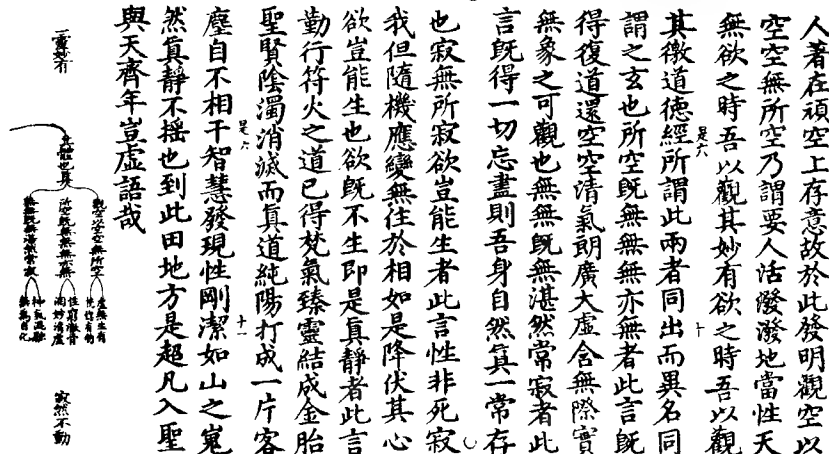 人著在頑空上存意故於此發明觀空以
空空無所空乃謂要人活潑潑地當性天
無欲之時吾以觀其妙有欲之時吾以觀
其徼道德經所謂此兩者同出而異名同
謂之玄也所空既無無無亦無者此言既
得復道還空空清氣朗廣大虛含無際實
無象之可觀也無無既無湛然常寂者此
言既得一切忘盡則吾身自然真一常存
也寂無所寂欲豈能生者此言性非死寂
我但隨機應變無住於相如是降伏其心
欲豈能生也欲既不生即是真靜者此言
勤行符火之道已得梵氣臻靈結成金胎
聖賢陰濁消滅而真道純陽打成一片客
塵自不相干智慧發現性剛潔如山之嵬
然真靜不搖也到此田地方是超凡入聖
與天齊年豈虛語哉
是六
十
是六
十一
觀空以空空無所空
所空既無無無亦無
無無既無湛然常寂
虛無生有
恍惚有物
寂然不動